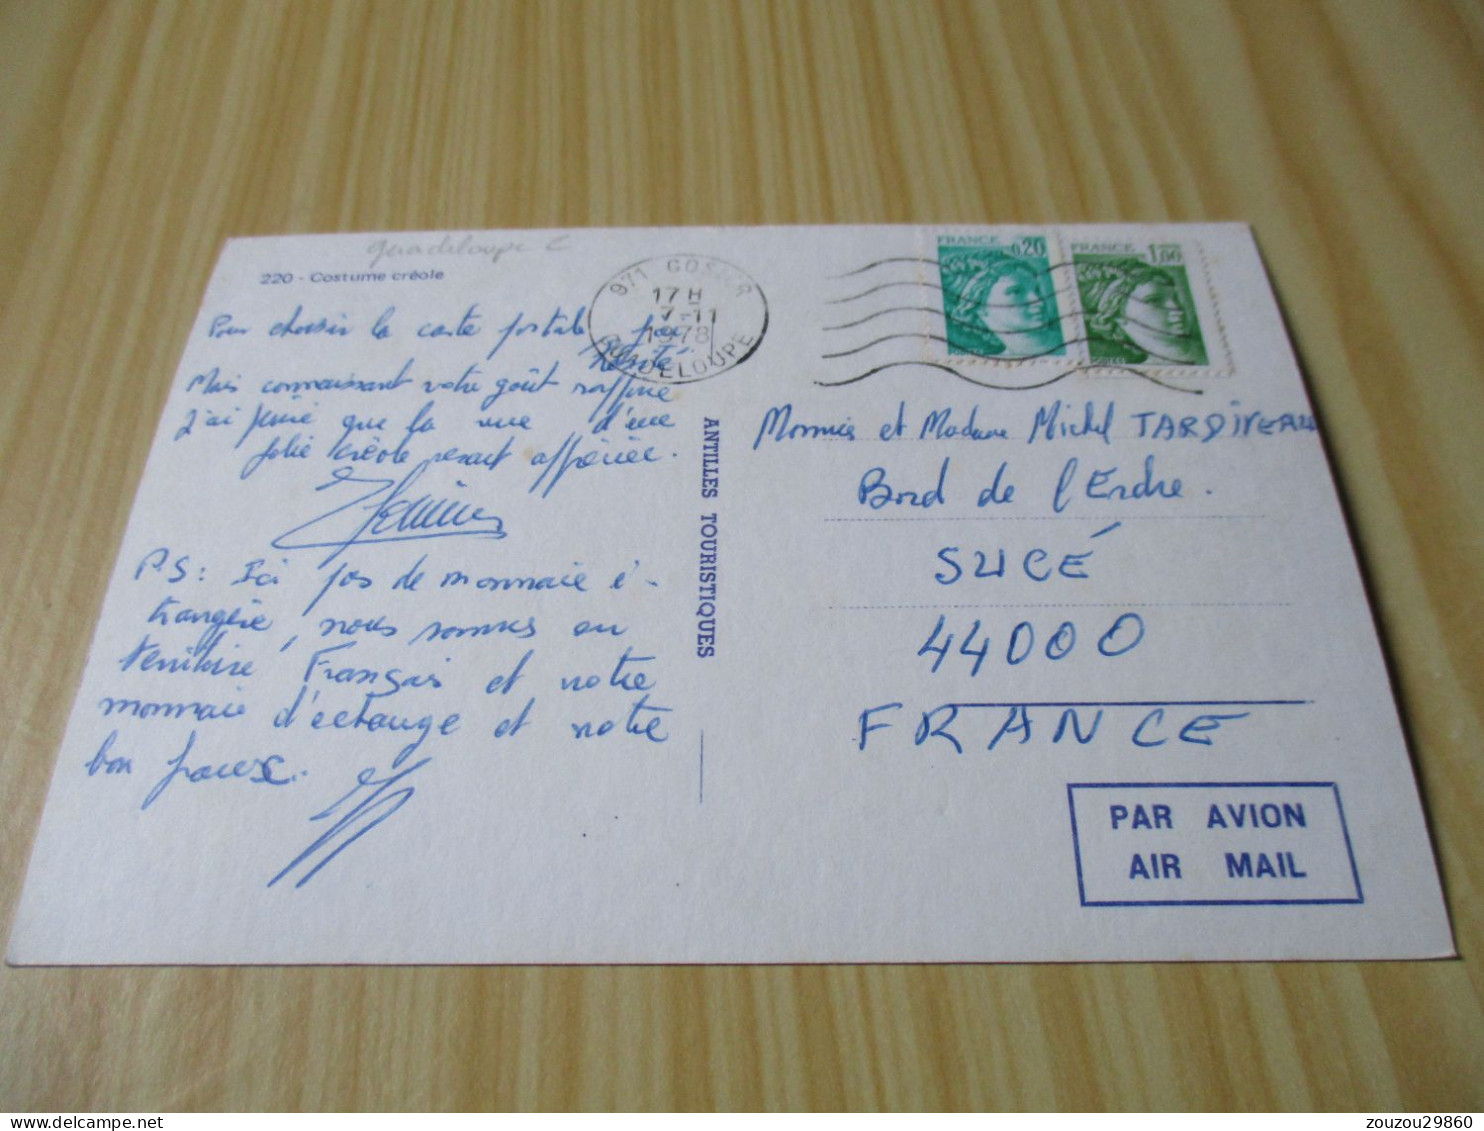 guadeloupe
220 - Costume créole
971 GOSIER
17 H
7-11
1978
GUADELOUPE
FRANCE 0,20
FRANCE 1,00
Pour choisir la carte postale j'ai
hésité
Mais connaissant votre goût raffiné
J'ai pensé que la vue d'une
jolie Créole serait appréciée.
P.S: Ici pas de monnaie é-
trangère, nous sommes en
territoire Français et notre
monnaie d'échange et notre
bon francs.
ANTILLES TOURISTIQUES
Monsieur et Madame Michel TARDIVEAU
Bord de l'Erdre.
SUCÉ
44000
FRANCE
PAR AVION
AIR MAIL
zouzou29860